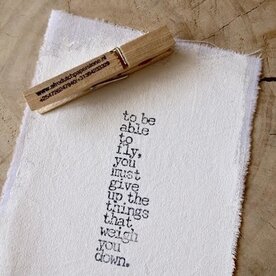 to be
able
to
fly,
you
must
give
up the
things
that
weigh
you
down.